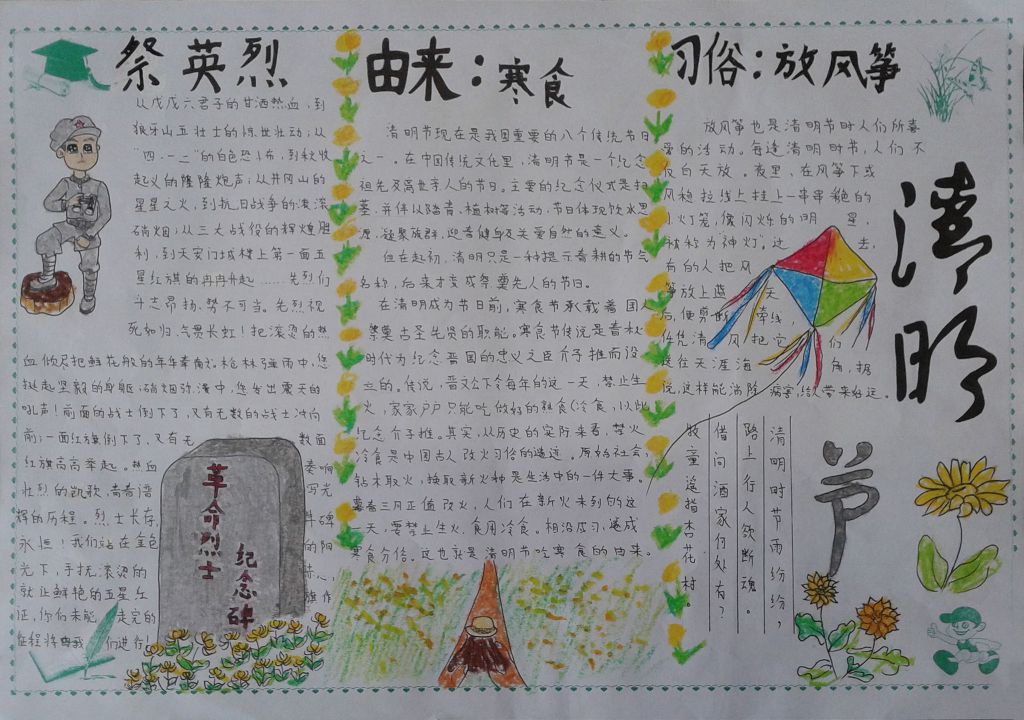 祭英烈
从戊戌六君子的甘洒热血，到
狼牙山五壮士的惊世壮动；从
“四·一二”的白色恐怖，到秋收
起义的隆隆炮声；从井冈山的
星星之火，到抗日战争的滚滚
硝烟；从三大战役的辉煌胜
利，到天安门城楼上第一面五
星红旗的冉冉升起……先烈们
斗志昂扬，势不可当。先烈视
死如归，气贯长虹！把滚烫的热
血倾尽把鲜花般的年华奉献。枪林弹雨中，您
挺起坚毅的身躯；硝烟弥漫中，您发出震天的
吼声！前面的战士倒下了，又有无数的战士冲向
前；一面红旗倒下了，又有无 数面
红旗高高举起。热血 奏响
壮烈的凯歌，青春谱 写光
辉的历程。烈士长存， 丰碑
永恒！我们站在金色 的阳
光下，手抚滚烫的 赤心
就正鲜艳的五星红 旗作
证，你们未能 走完的
征程将由我们进行！
革命烈士
纪念碑
由来：寒食
清明节现在是我国重要的八个传统节日
之一。在中国传统文化里，清明节是一个纪念
祖先及离世亲人的节日。主要的纪念仪式是扫
墓，并伴以踏青、植树等活动，节日体现饮水思
源，凝聚族群，迎春健身及关爱自然的意义。
但在起初，清明只是一种提示春耕的节气
名称，后来才变成祭奠先人的节日。
在清明成为节日前，寒食节承载着国人
祭奠古圣先贤的职能。寒食节传说是春秋
时代为纪念晋国的忠义之臣介子推而设
立的。传说，晋文公下令每年的这一天，禁止生
火，家家户户只能吃做好的熟食（冷食，以此
纪念介子推。其实，从历史的实际来看，禁火
冷食是中国古人改火习俗的遗迹。原始社会，
钻木取火，换取新火种是生活中的一件大事。
春三月正值改火，人们在新火未到的这
一天，要禁止生火，食用冷食。相沿成习，遂成
寒食节俗。这也就是清明节吃寒食的由来。
习俗：放风筝
放风筝也是清明节时人们所喜
爱的活动。每逢清明时节，人们不
仅白天放。夜里，在风筝下或
风稳拉线上挂上一串串彩色的
小灯笼，像闪烁的明 星，
被称为“神灯”。过 去，
有的人把风
筝放上蓝 天
后，便剪断 牵线，
任凭清 风把它 们
送往天涯海 角，据
说，这样能消除 病害，给人带来好运。
清明时节雨纷纷，
路上行人欲断魂。
借问酒家何处有？
牧童遥指杏花村。
清明节